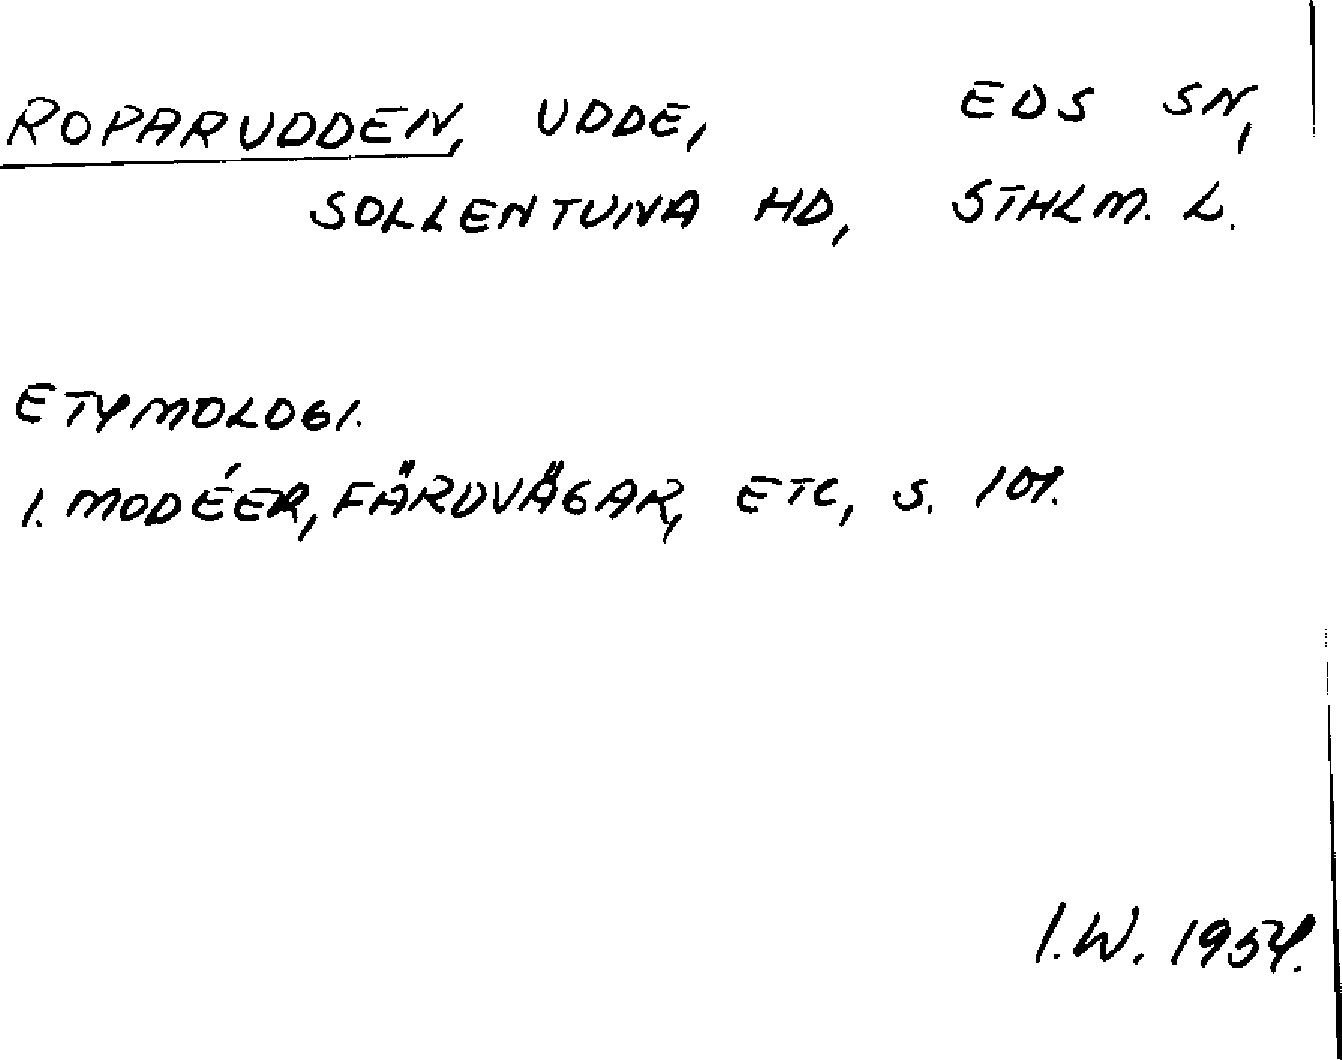 ROPARUDDEN, UDDE, EDS SN,
SOLLENTUNA HD, STHLM. L.
ETYMOLOGI.
I. MODÉER, FÄRDVÄGAR, ETC, S.
I.W. 1954.